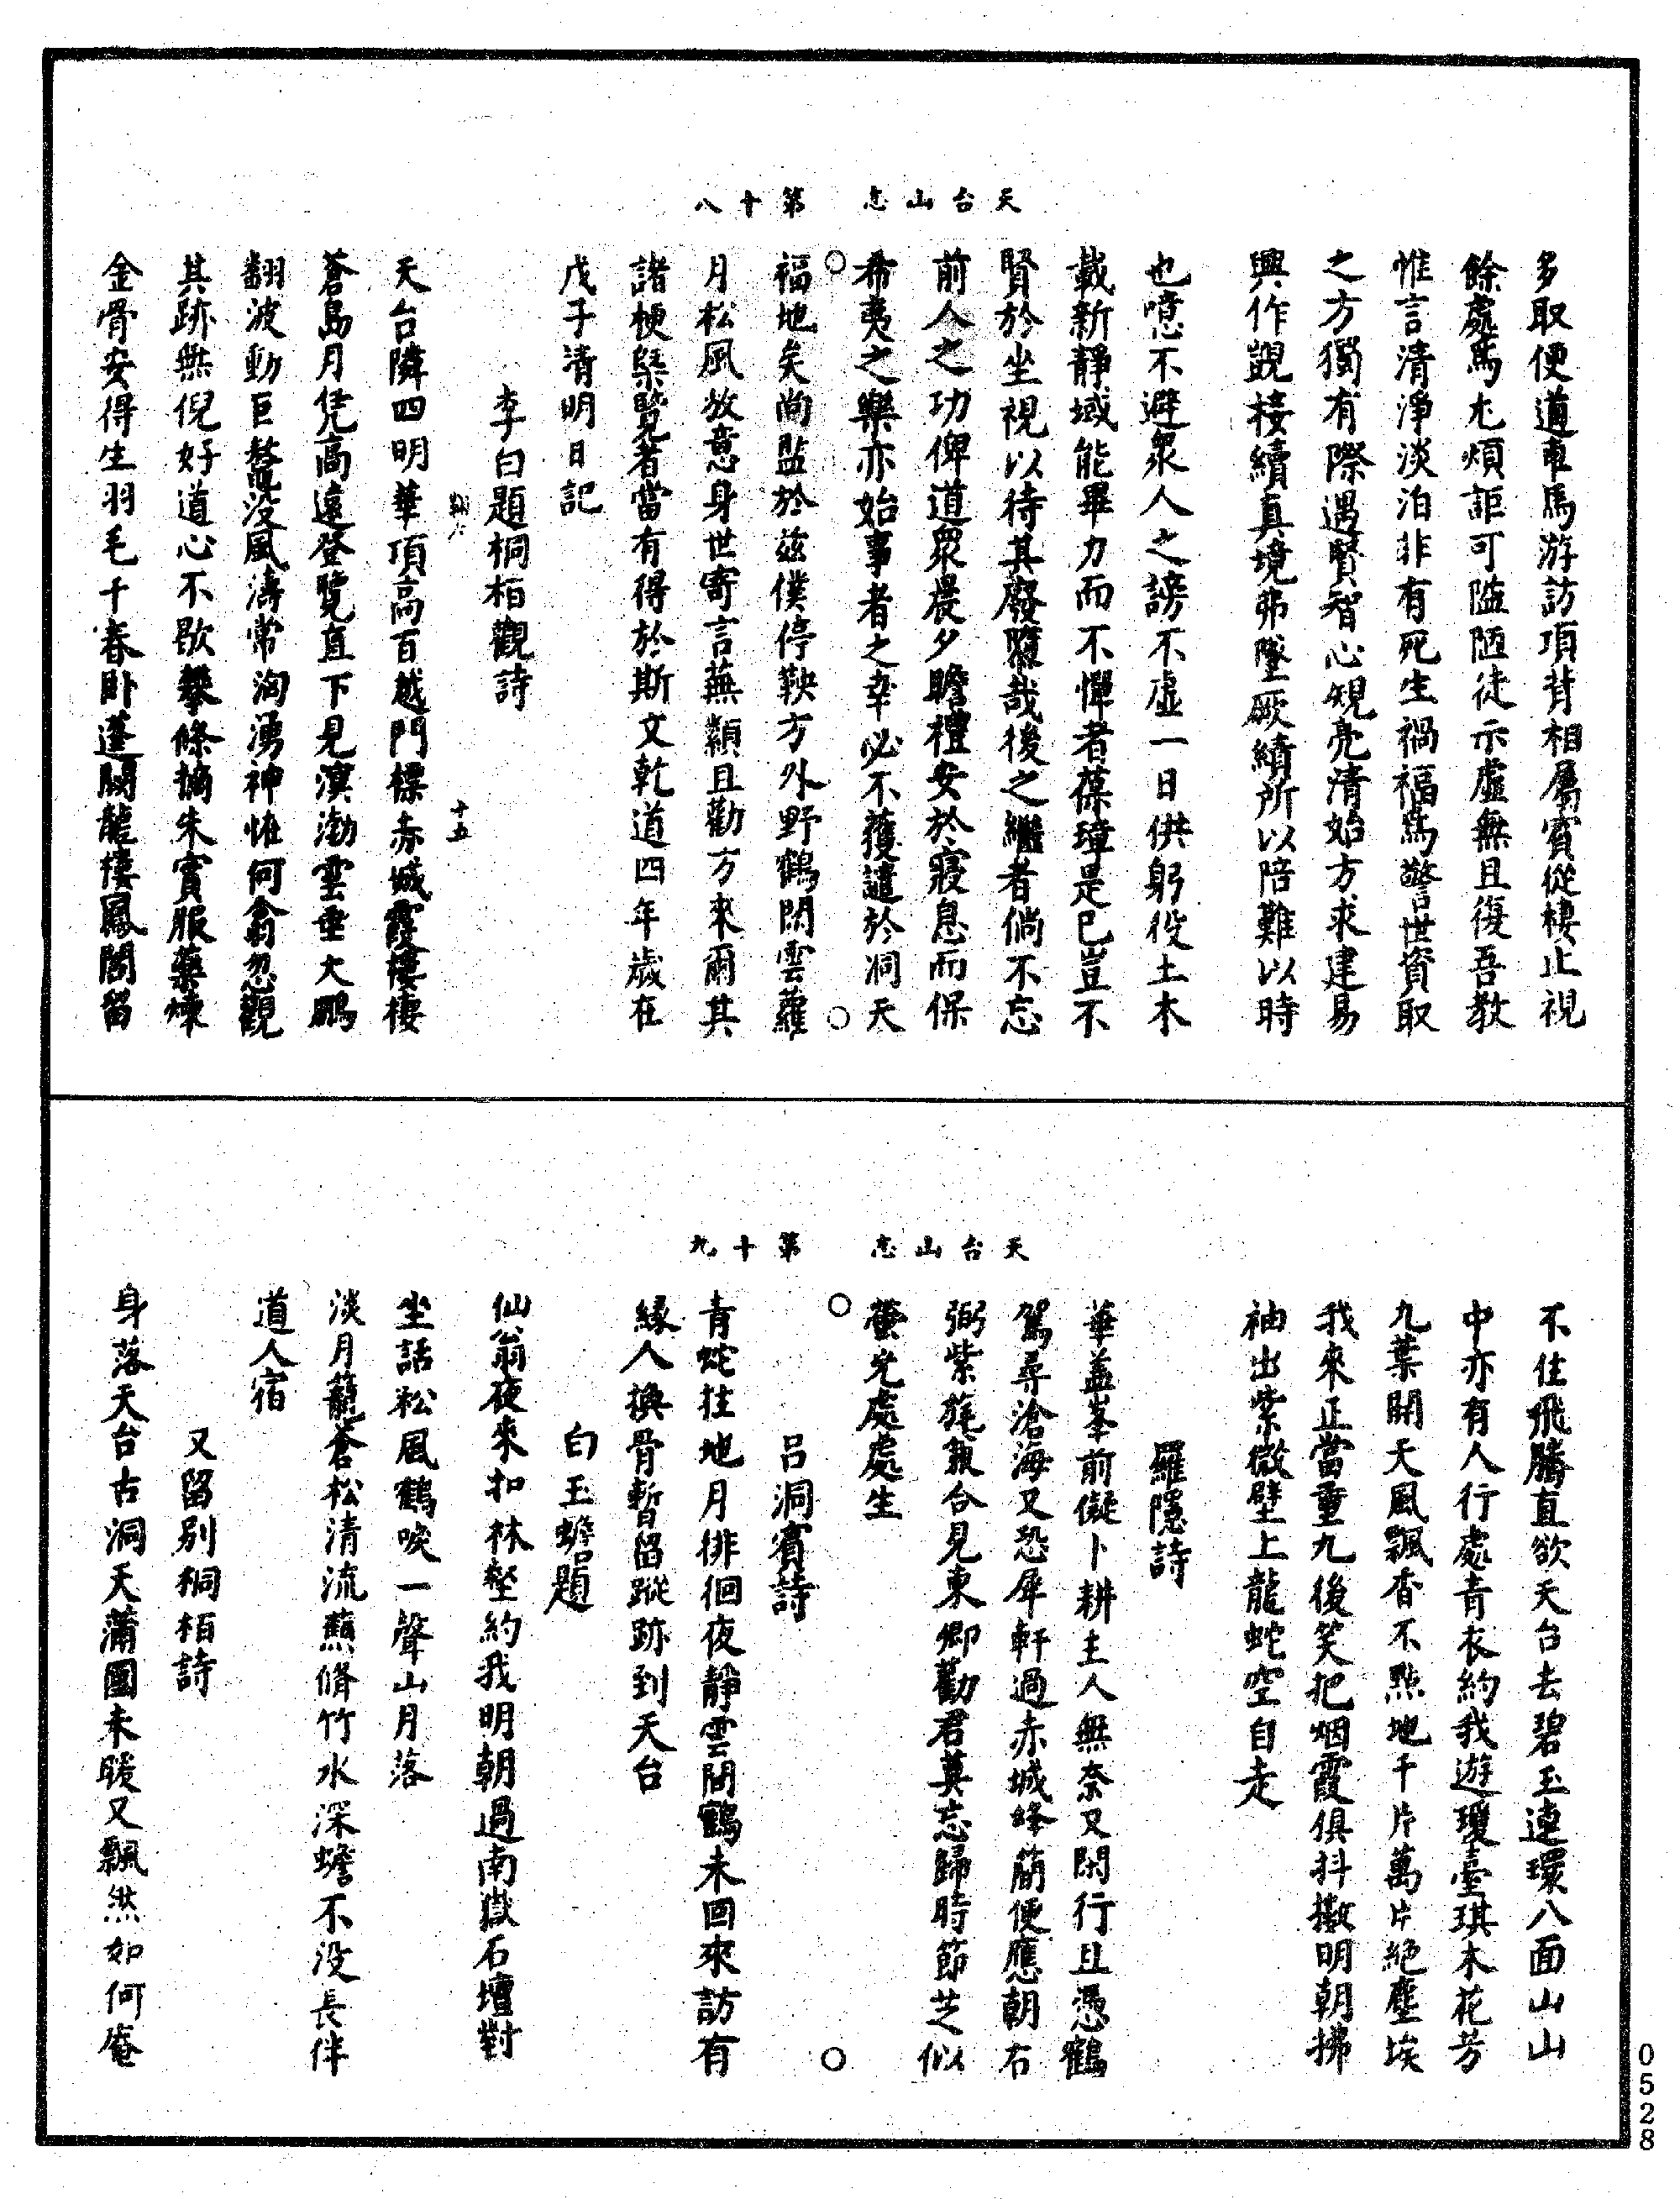 天台山志　第十八
多取便道車馬游訪項背相屬賓從棲止視
餘處爲尤煩詎可隘陋徒示虛無且復吾教
惟言清淨淡泊非有死生禍福爲警世資取
之方獨有際遇賢智心規亮清始方求建易
興作覬接續真境弗墜厥績所以陪難以時
也噫不避衆人之謗不虛一日供躬役土木
載新靜域能畢力而不憚者葆璋是已豈不
賢於坐視以待其廢隳哉後之繼者倘不忘
前人之功俾道衆晨夕瞻禮安於寢息而保
希夷之樂亦始事者之幸必不獲譴於洞天
福地矣尚監於兹僕停鞅方外野鶴閑雲蘿
月松風放意身世寄言蕪纇且勸方來爾其
諸梗槩覽者當有得於斯文乾道四年歲在
戊子清明日記
李白題桐柏觀詩
十五
天台隣四明華頂高百越門標赤城霞樓棲
蒼島月凭高遠登覽直下見溟渤雲垂大鵬
翻波動巨鼇没風濤常洶湧神怪何翕忽觀
其跡無倪好道心不歇攀條摘朱實服藥煉
金骨安得生羽毛千春卧蓬闕龍樓鳳閣留
天台山志　第十九
不住飛騰直欲天台去碧玉連環八面山山
中亦有人行處青衣約我遊瓊臺琪木花芳
九葉開天風飄香不點地千片萬片絶塵埃
我來正當重九後笑把烟霞俱抖擻明朝拂
袖出紫微壁上龍蛇空自走
羅隱詩
華盖峯前儗卜耕主人無奈又閑行且憑鶴
駕尋滄海又恐犀軒過赤城絳簡便應朝右
弼紫旄兼合見東卿勸君莫忘歸時節芝似
螢光處處生
吕洞賓詩
青蛇拄地月徘徊夜靜雲閑鶴未回來訪有
緣人換骨暫留蹤跡到天台
白玉蟾題
仙翁夜來扣林壑約我明朝過南嶽石壇對
坐話松風鶴唳一聲山月落
淡月籠蒼松清流蘸脩竹水深蟾不没長伴
道人宿
又留别桐柏詩
身落天台古洞天蒲團未暖又飄然如何庵
0528